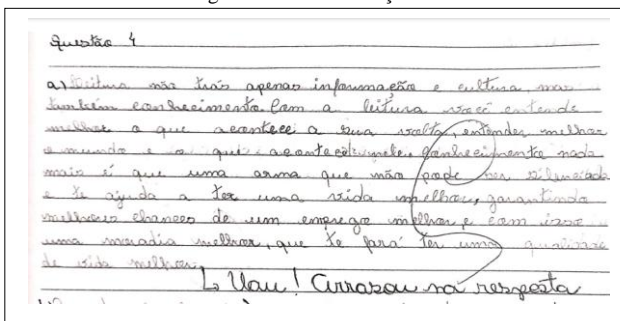 Questão 4
a) Leitura não trás apenas informação e cultura, mas
também conhecimento. Com a leitura você entende
melhor o que acontece a sua volta, entender melhor
o mundo e o que acontece nele. Conhecimento nada
mais é que uma arma que não pode ser silenciada
e te ajuda a ter uma vida melhor, garantindo
melhores chances de um emprego melhor, e com isso
uma moradia melhor, que te fará ter uma qualidade
de vida melhor.
↳ Uau! Arrasou na resposta